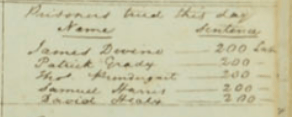 Prisoners tried this day
Name Sentence
James Devine 200 Lash
Patrick Grady 200
Thos Prendergast 200
Samuel Harris 200
David Healy 200